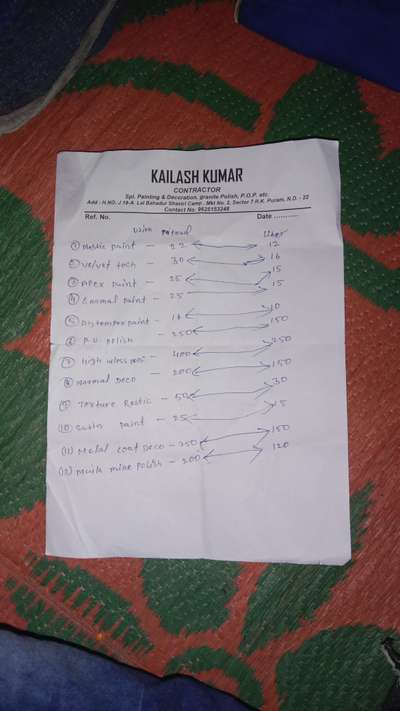 KAILASH KUMAR
CONTRACTOR
Spl. Painting & Decoration, granite Polish, P.O.P. etc.
Add : H.NO. J 19-A. Lal Bahadur Shastri Camp . Mkt No. 2, Sector 7 R.K. Puram, N.D. - 22
Contact No. 9625153248
Ref. No. Date ..........
With
① paint - 22 12
② velvet tech - 30 16
③ Apex paint - 25 15
④ paint - 25 15
⑤ Distemper paint - 10
⑥ P.U polish - 250 150
⑦ High - 400 250
⑧ normal Deco - 200 150
⑨ Texture - 50 30
(10) paint - 25 15
(11) Metal coat Deco - 250 150
(12) polish - 200 120